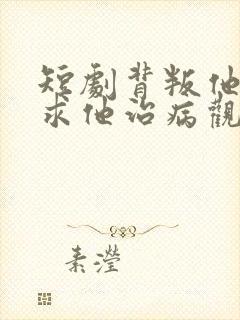 短劇背叛他
求他治病觀
素瀅